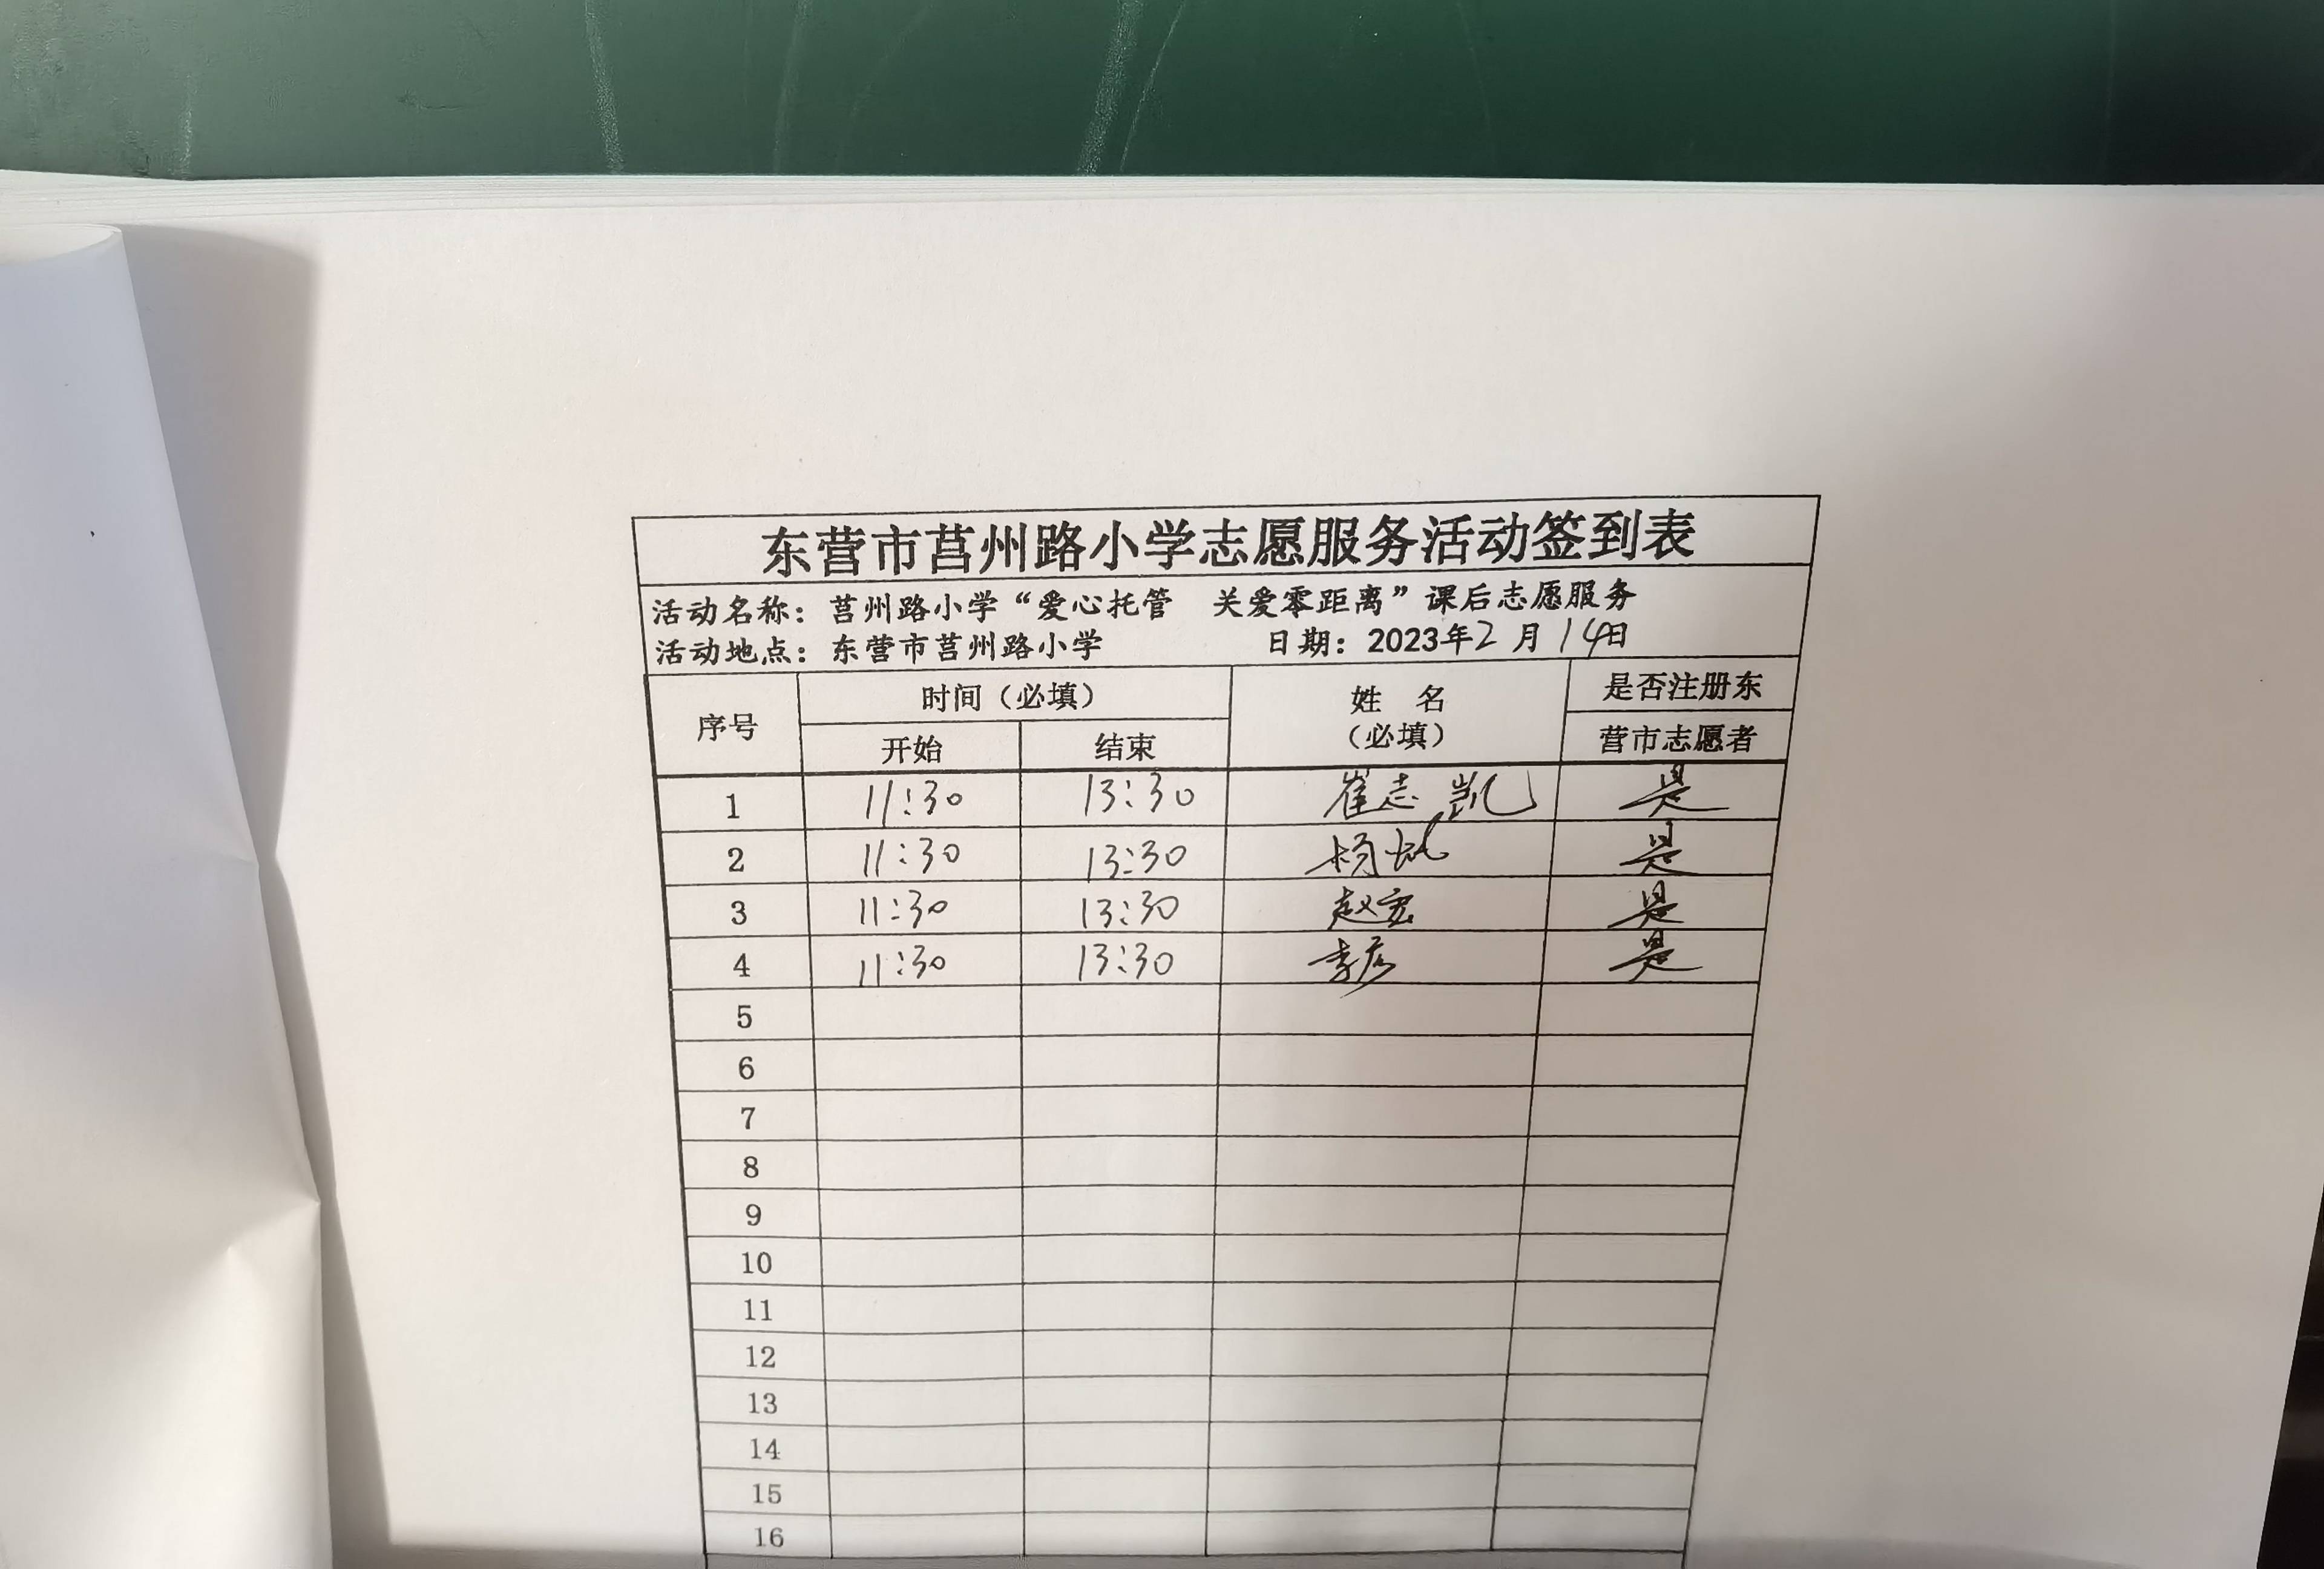 东营市莒州路小学志愿服务活动签到表
活动名称：莒州路小学“爱心托管 关爱零距离”课后志愿服务
活动地点：东营市莒州路小学 日期：2023年2月14日
序号 时间（必填） 姓 名（必填） 是否注册东营市志愿者
开始 结束
1 11:30 13:30 崔志凯 是
2 11:30 13:30 杨 是
3 11:30 13:30 赵宏 是
4 11:30 13:30 李彦 是
5
6
7
8
9
10
11
12
13
14
15
16